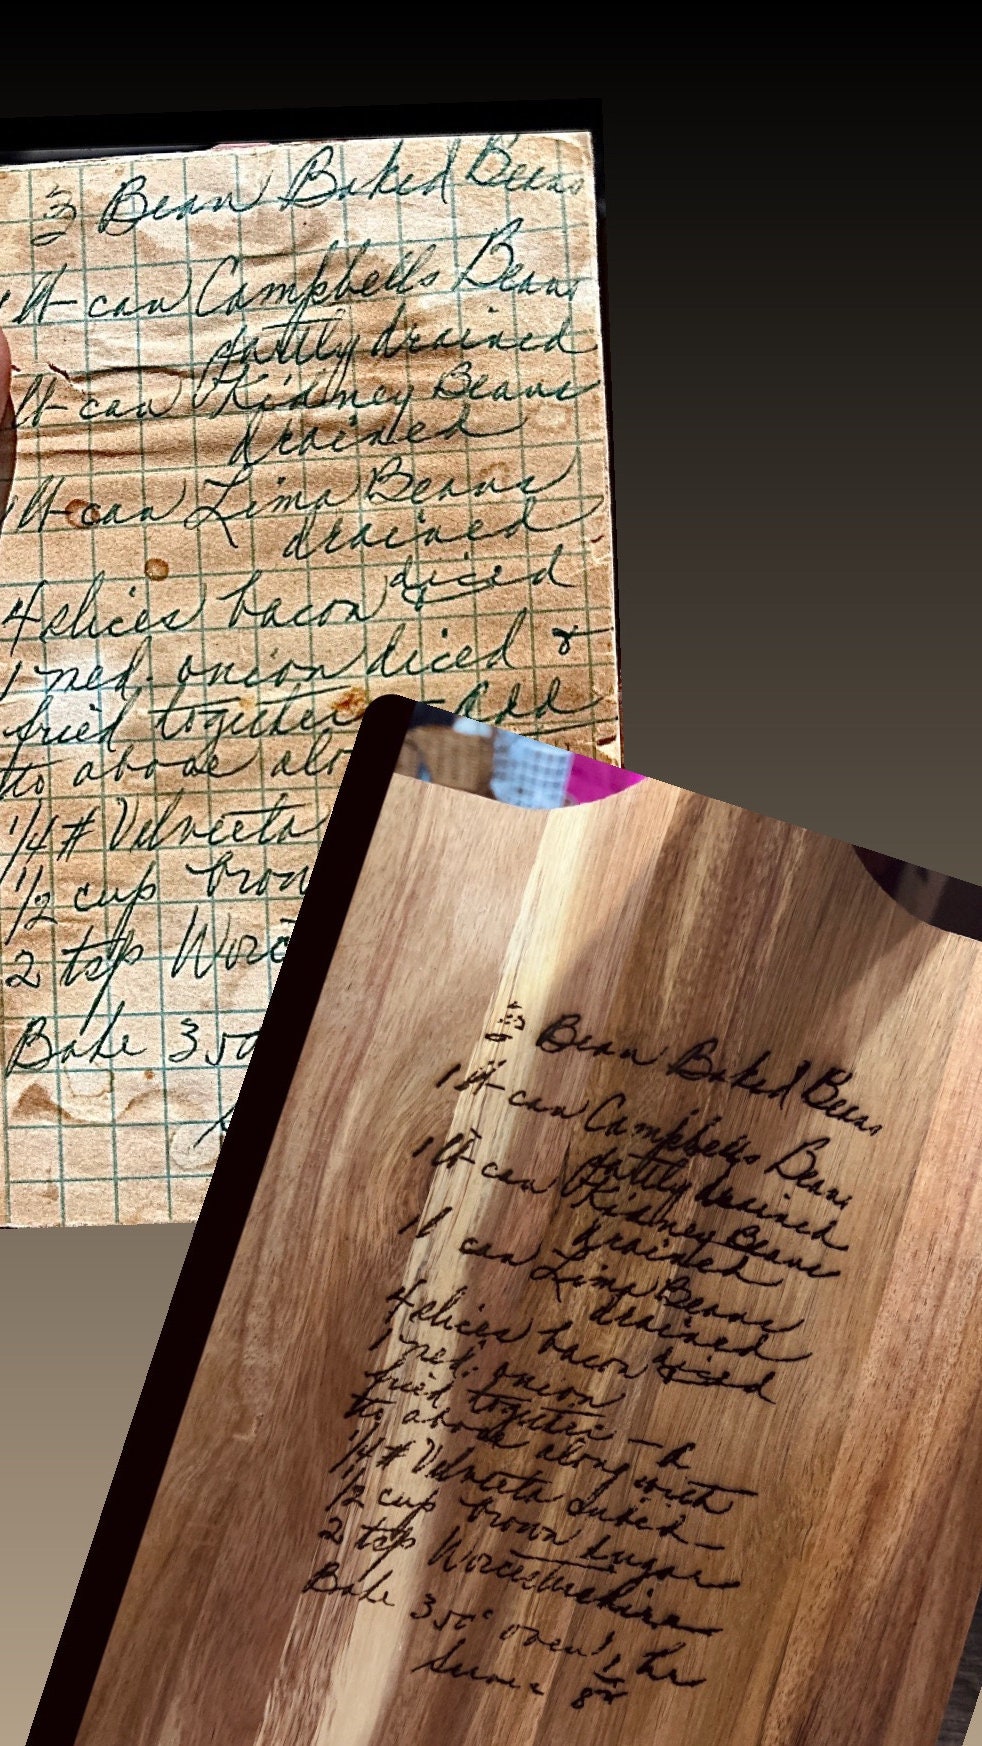 3 Bean Baked Beans
1 lb can Campbells Beans
partly drained
1 lb can Kidney Beans
drained
1 lb can Lima Beans
drained
4 slices bacon diced
1 med. onion diced &
fried together - add
to above alo
1/4 # Velveeta
1/2 cup brow
2 tsp Worc
Bake 350
3 Bean Baked Beans
1 lb can Campbells Beans
partly drained
1 lb can Kidney Beans
drained
1 l can Lima Beans
drained
4 slices bacon diced
1 med. onion
fried together - a
to above along with
1/4 # Velveeta cubed -
1/2 cup brown sugar
2 tsp Worcestershire
Bake 350° oven 1 hr
Serves 8